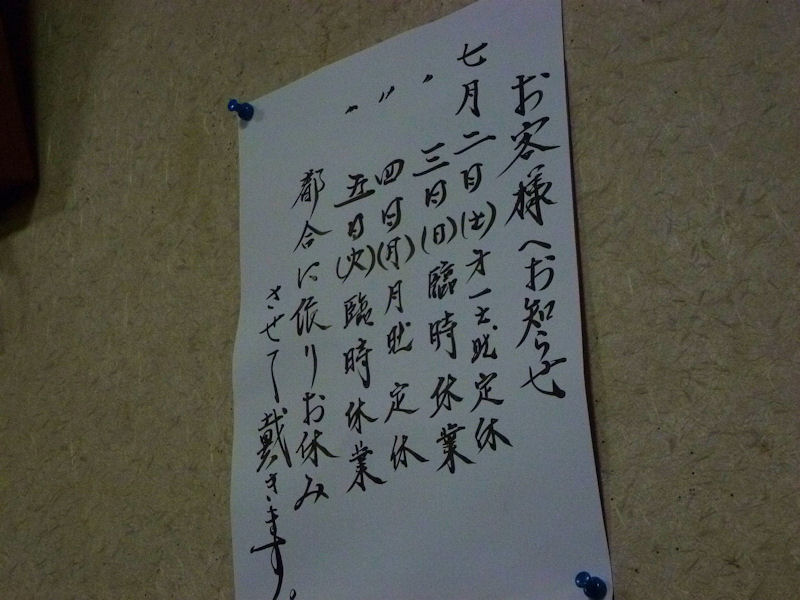 お客様へお知らせ
七月二日(土)才一土曜定休
〃三日(日)臨時休業
〃四日(月)月曜定休
〃五日(火)臨時休業
都合に依りお休み
させて戴きます。